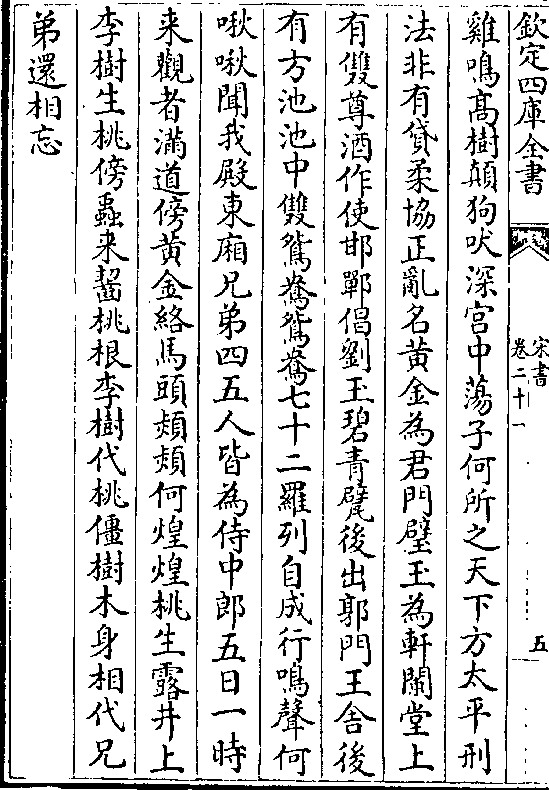 欽定四庫全書
宋書
卷二十一
五
雞鳴髙樹顛狗吠深宫中蕩子何所之天下方太平刑
法非有貸柔協正亂名黄金為君門璧玉為軒闌堂上
有雙尊酒作使邯鄲倡劉玉碧青甓後出郭門王舎後
有方池池中雙鴛鴦鴛鴦七十二羅列自成行鳴聲何
啾啾聞我殿東廂兄弟四五人皆為侍中郎五日一時
来觀者滿道傍黄金絡馬頭熲熲何煌煌桃生露井上
李樹生桃傍蟲来齧桃根李樹代桃僵樹木身相代兄
弟還相忘